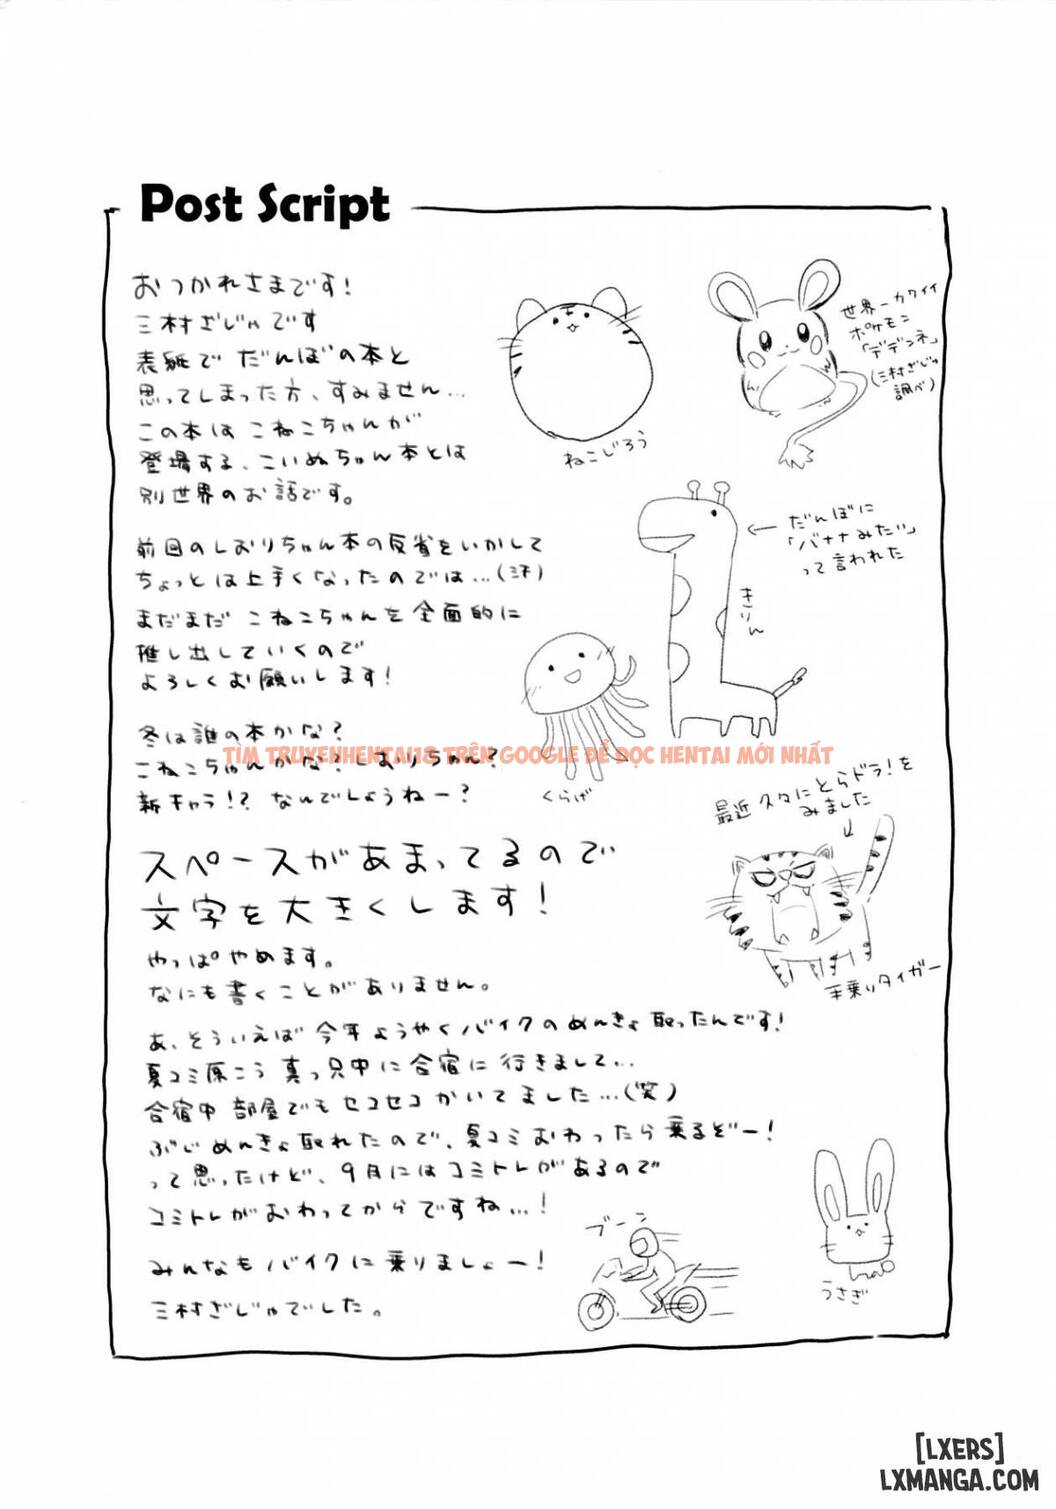 Post Script
おつかれさまです!
三村ざじゃです
表紙で だんぼの本と
思ってしまった方、すみません...
この本は こねこちゃんが
登場する、こいぬちゃん本とは
別世界のお話です。
前回のしおりちゃん本の反省をいかして
ちょっとは上手くなったのでは...(汗)
まだまだ こねこちゃんを全面的に
推し出していくので
よろしくお願いします!
冬は誰の本かな?
こねこちゃんかな? しおりちゃん?
新キャラ!? なんでしょうねー?
スペースがあまってるので
文字を大きくします!
やっぱやめます。
なにも書くことがありません。
あ、そういえば 今年ようやくバイクのめんきょ取ったんです!
夏コミ原こう真っ只中に合宿に行きまして...
合宿中 部屋でもセコセコかいてました...(笑)
ぶじめんきょ取れたので、夏コミおわったら乗るぞー!
って思ったけど、9月にはコミトレがあるので
コミトレがおわってからですね...!
みんなもバイクに乗りましょー!
三村ざじゃでした。
ねこじろう
世界一カワイイ
ポケモン
「デデンネ」
(三村ざじゅ
調べ)
だんぼに
「バナナみたい」
って言われた
きりん
くらげ
最近 久々にとらドラ!を
みました
手乗りタイガー
ブーン
うさぎ
TÌM TRUYENHENTAI18 TRÊN GOOGLE ĐỂ ĐỌC HENTAI MỚI NHẤT
[LXERS]
LXMANGA.COM